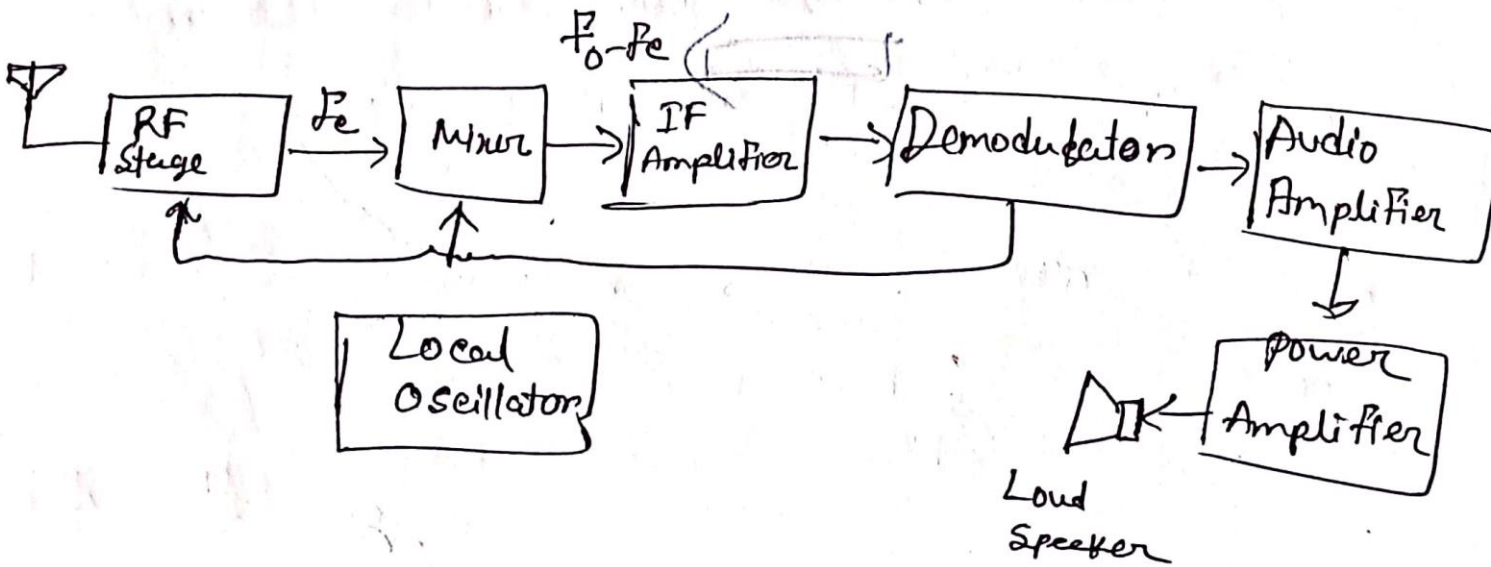 F₀-fc
RF
Stage
fc
Mixer
IF
Amplifier
Demodulator
Audio
Amplifier
Local
Oscillator
Power
Amplifier
Loud
Speaker